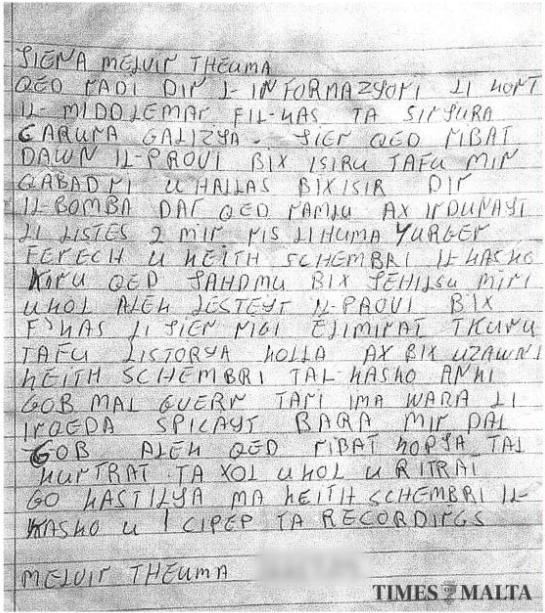 JIENA MELVIN THEUMA
QED NADI DIN L-INFORMAZYONI LI KONT
IL-MIDDLEMAN FIL-KAS TA SINJURA
GARUNA GALIZYA. JIEN QED NIBAT
DAWN IL-PROVI BIX ISIRU TAFU MIN
QABADNI U HALLAS BIX ISIR DIN
IL-BOMBA DAN QED NAMLU AX INDUNAYT
LI LISTES 2 MIN NIS LI HUMA YURGEN
FENECH U KEITH SCHEMBRI IL-KASKO
KONU QED JAHDMU BIX JEHILSU MINI
U KOL ALEK JESTEYT IL-PROVI BIX
F'KAS LI JIEN NIGI ELIMINAT TKUNU
TAFU LISTORYA KOLLA AX BIX UZAWNI
KEITH SCHEMBRI TAL-KASKO ANKI
GOB MAL GVERN TANI IMA WARA LI
INQEDA SPICAYT BARA MIN DAL
GOB ALEK QED NIBAT KOPJA TAL
KUNTRAT TA XOL U KOL U RITRAT
GO KASTILYA MA KEITH SCHEMBRI IL-
KASKO U 1 CIPEP TA RECORDINGS
MELVIN THEUMA
TIMES MALTA